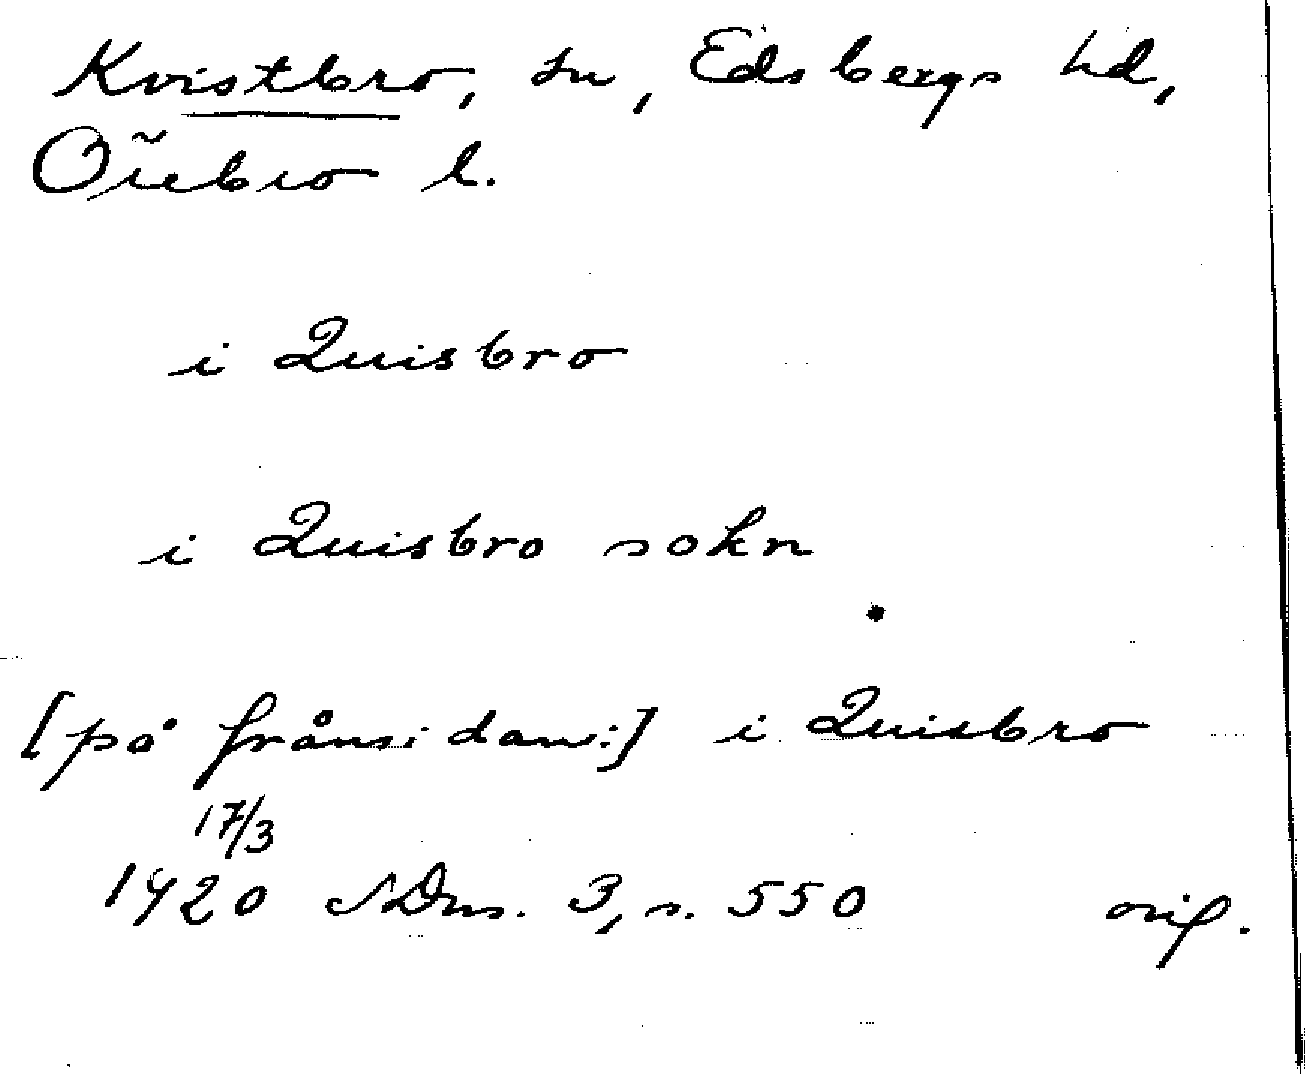 Kvistbro, sn, Edsbergs hd,
Örebro l.
i Quisbro
i Quisbro sokn
[på frånsidan:] i Quisbro
17/3
1420 SDns. 3, s. 550 orig.